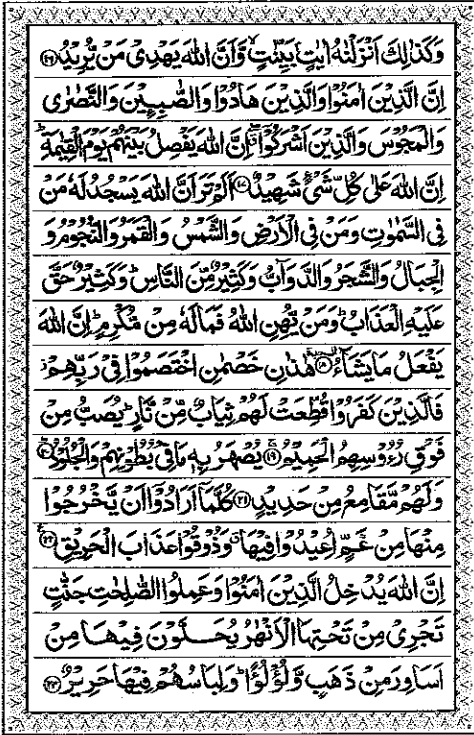 وَكَذٰلِكَ اَنْزَلْنٰهُ اٰيٰتٍۭ بَيِّنٰتٍ ۙ وَّاَنَّ اللّٰهَ يَهْدِىْ مَنْ يُّرِيْدُ ﴿۱۶﴾
اِنَّ الَّذِيْنَ اٰمَنُوْا وَالَّذِيْنَ هَادُوْا وَالصّٰبِـِٕيْنَ وَالنَّصٰرٰى
وَالْمَجُوْسَ وَالَّذِيْنَ اَشْرَكُوْۤا ۖ اِنَّ اللّٰهَ يَفْصِلُ بَيْنَهُمْ يَوْمَ الْقِيٰمَةِ ؕ
اِنَّ اللّٰهَ عَلٰى كُلِّ شَىْءٍ شَهِيْدٌ ﴿۱۷﴾ اَلَمْ تَرَ اَنَّ اللّٰهَ يَسْجُدُ لَهٗ مَنْ
فِى السَّمٰوٰتِ وَمَنْ فِى الْاَرْضِ وَالشَّمْسُ وَالْقَمَرُ وَالنُّجُوْمُ وَ
الْجِبَالُ وَالشَّجَرُ وَالدَّوَآبُّ وَكَثِيْرٌ مِّنَ النَّاسِ ؕ وَكَثِيْرٌ حَقَّ
عَلَيْهِ الْعَذَابُ ؕ وَمَنْ يُّهِنِ اللّٰهُ فَمَا لَهٗ مِنْ مُّكْرِمٍ ؕ اِنَّ اللّٰهَ
يَفْعَلُ مَا يَشَآءُ ﴿۱۸﴾ هٰذٰنِ خَصْمٰنِ اخْتَصَمُوْا فِىْ رَبِّهِمْ ۫
فَالَّذِيْنَ كَفَرُوْا قُطِّعَتْ لَهُمْ ثِيَابٌ مِّنْ نَّارٍ ؕ يُصَبُّ مِنْ
فَوْقِ رُءُوْسِهِمُ الْحَمِيْمُ ﴿۱۹﴾ يُصْهَرُ بِهٖ مَا فِىْ بُطُوْنِهِمْ وَالْجُلُوْدُ ﴿۲۰﴾
وَلَهُمْ مَّقَامِعُ مِنْ حَدِيْدٍ ﴿۲۱﴾ كُلَّمَاۤ اَرَادُوْۤا اَنْ يَّخْرُجُوْا
مِنْهَا مِنْ غَمٍّ اُعِيْدُوْا فِيْهَا ۗ وَذُوْقُوْا عَذَابَ الْحَرِيْقِ ﴿۲۲﴾
اِنَّ اللّٰهَ يُدْخِلُ الَّذِيْنَ اٰمَنُوْا وَعَمِلُوا الصّٰلِحٰتِ جَنّٰتٍ
تَجْرِىْ مِنْ تَحْتِهَا الْاَنْهٰرُ يُحَلَّوْنَ فِيْهَا مِنْ
اَسَاوِرَ مِنْ ذَهَبٍ وَّلُؤْلُؤًا ؕ وَلِبَاسُهُمْ فِيْهَا حَرِيْرٌ ﴿۲۳﴾